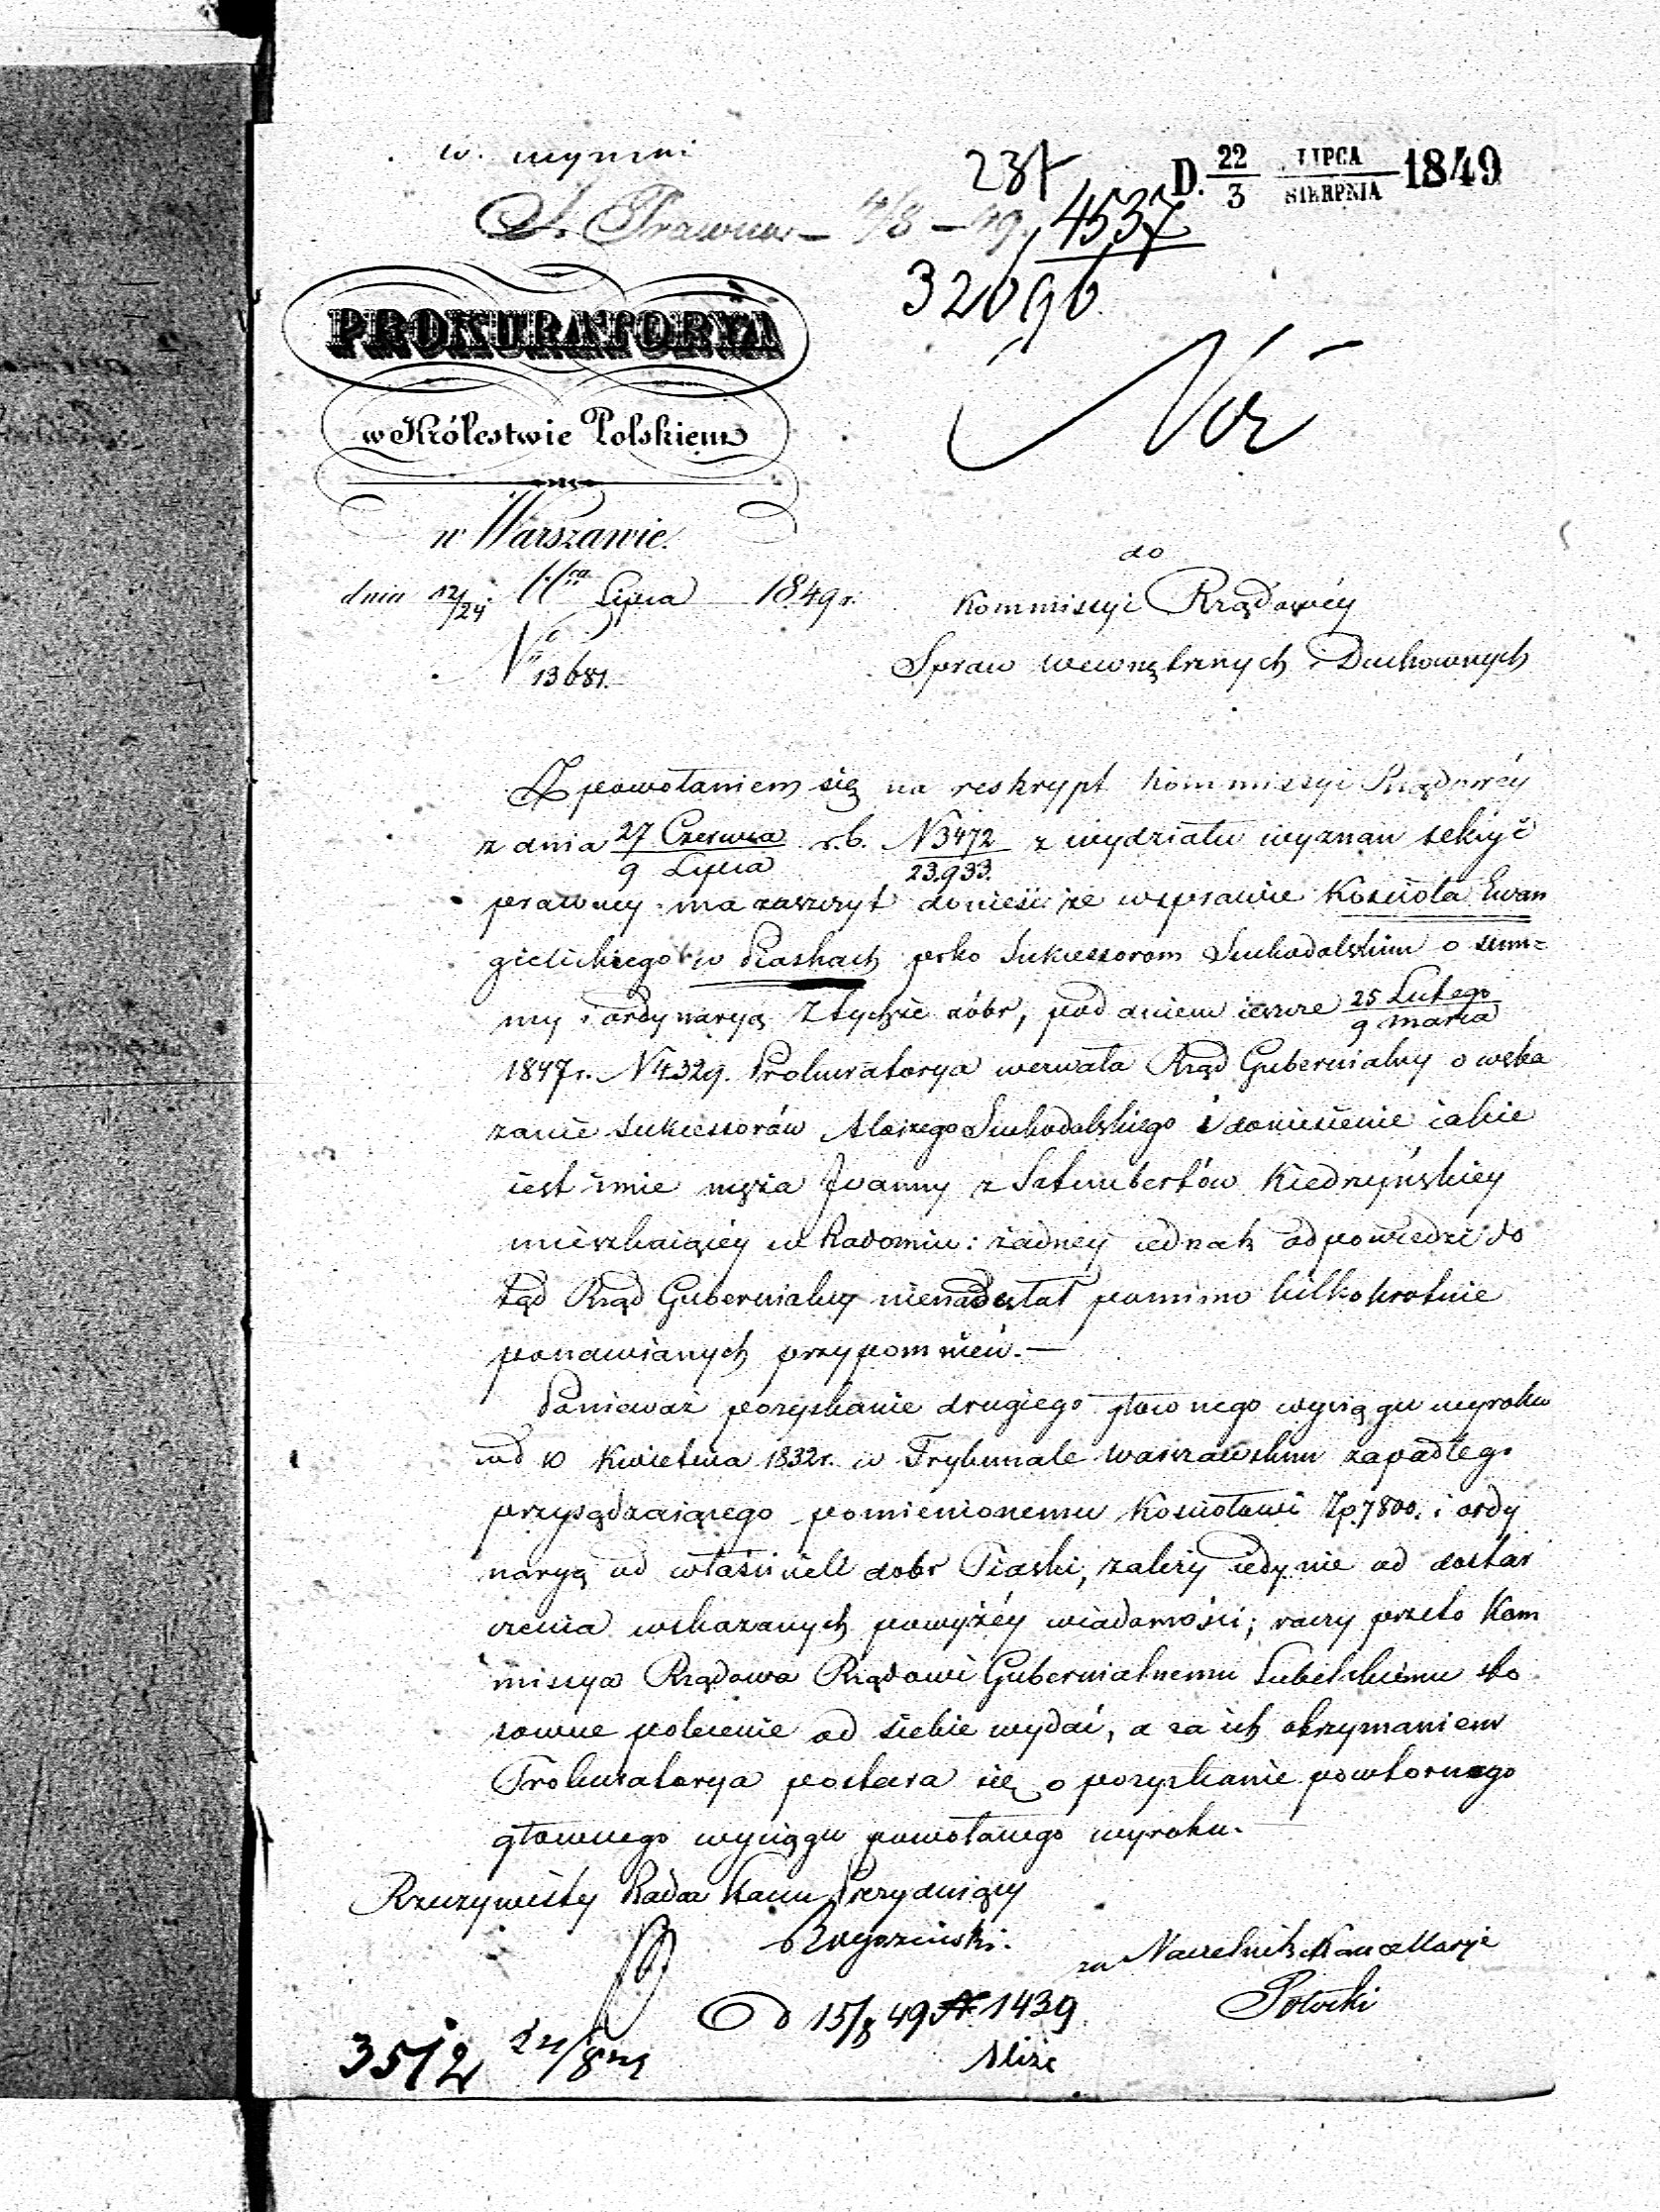 w. wyznań
S. Prawna — 4/8 — 49
237
D. 22/3 LIPCA/SIERPNIA 1849
4537
32696
PROKURATORYA
w Królestwie Polskiem
w Warszawie.
dnia 12/24 Lipca 1849 r.
N 13681.
do
Kommissyi Rządowéy
Spraw wewnętrznych i Duchownych
Z powołaniem się na reskrypt Kommissyi Rządowéy
z dnia 27 Czerwca/9 Lipca r. b. N 3472/23.933. z wydziału wyznań sekcyi
prawney ma zaszczyt donieść że w sprawie Kościoła Ewan
gielickiego w Piaskach prko Sukcessorom Suchodolskim o sum=
my i ordynaryą z tychże dóbr, pod dniem ieszcze 25 Lutego/9 Marca
1847 r. N 4329. Prokuratorya wezwała Rząd Gubernialny o wska
zanie Sukcessorów Aloizego Suchodolskiego i doniesienie iakie
iest imie męża Joanny z Sztumbertów Kiedrzyńskiey
mieszkaiącéy w Radomiu: żadney iednak odpowiedzi do
tąd Rząd Gubernialny nienadesłał pomimo kilkokrotnie
ponawianych przypomnień. —
Ponieważ pozyskanie drugiego głownego wyciągu wyroku
pod 10 Kwietnia 1832 r. w Trybunale Warszawskim zapadłego
przysądzaiącego pomienionemu Kosciołowi Zp. 7800. i ordy
naryą od właścicieli dobr Piaski, zależy iedynie od dostar
czenia wskazanych powyżéy wiadomości; raczy przeto Kom
missya Rządowa Rządowi Gubernialnemu Lubelskiemu sto
sowne polecenie od siebie wydać, a za ich otrzymaniem
Prokuratorya postara się o pozyskanie powtornego
głownego wyciągu powołanego wyroku.
Rzeczywisty Radca Stanu Prezyduiący
za Naczelnik Kancellaryi
Potocki
Od 15/8 49 N 1439
3512